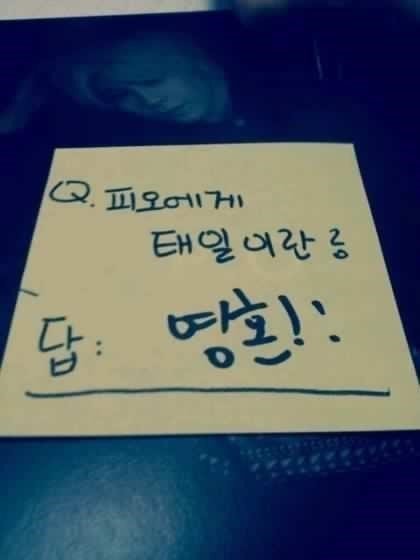 Q. 피오에게
태일이란 ?
답 : 영혼!